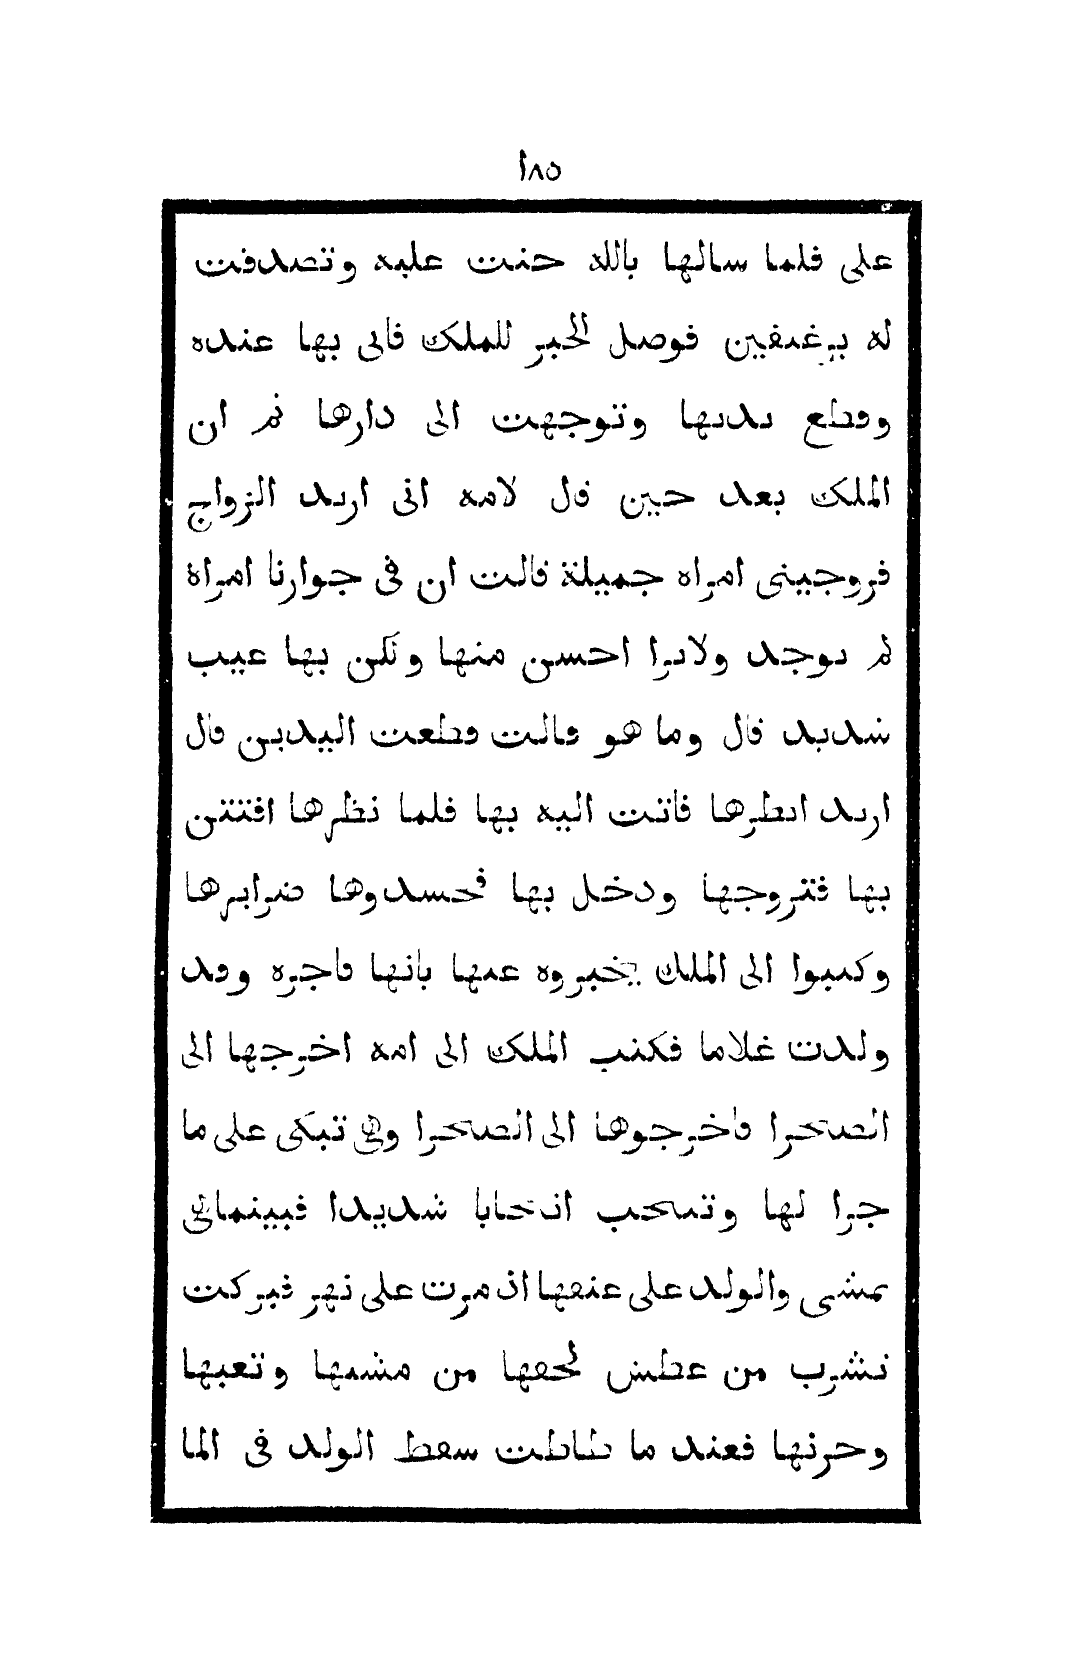 ١٨٥
على فلما سالها بالله حنت عليه وتصدقت
له برغيفين فوصل الخبر للملك فاتى بها عنده
وقطع يديها وتوجهت الى دارها ثم ان
الملك بعد حين قال لامه انى اريد الزواج
فزوجينى امراه جميلة قالت ان فى جوارنا امراة
لم يوجد ولا يرا احسن منها ولكن بها عيب
شديد قال وما هو قالت قطعت اليدين قال
اريد انظرها فاتت اليه بها فلما نظرها افتتن
بها فتزوجها ودخل بها فحسدوها ضرايرها
وكتبوا الى الملك يخبروه عنها بانها فاجره وقد
ولدت غلاما فكتب الملك الى امه اخرجها الى
الصحرا فاخرجوها الى الصحرا وهى تبكى على ما
جرا لها وتنتحب انتحابا شديدا فبينماهى
تمشى والولد على عنقها اذ مرت على نهر فبركت
تشرب من عطش لحقها من مشيها وتعبها
وحزنها فعند ما طاطت سقط الولد فى الما